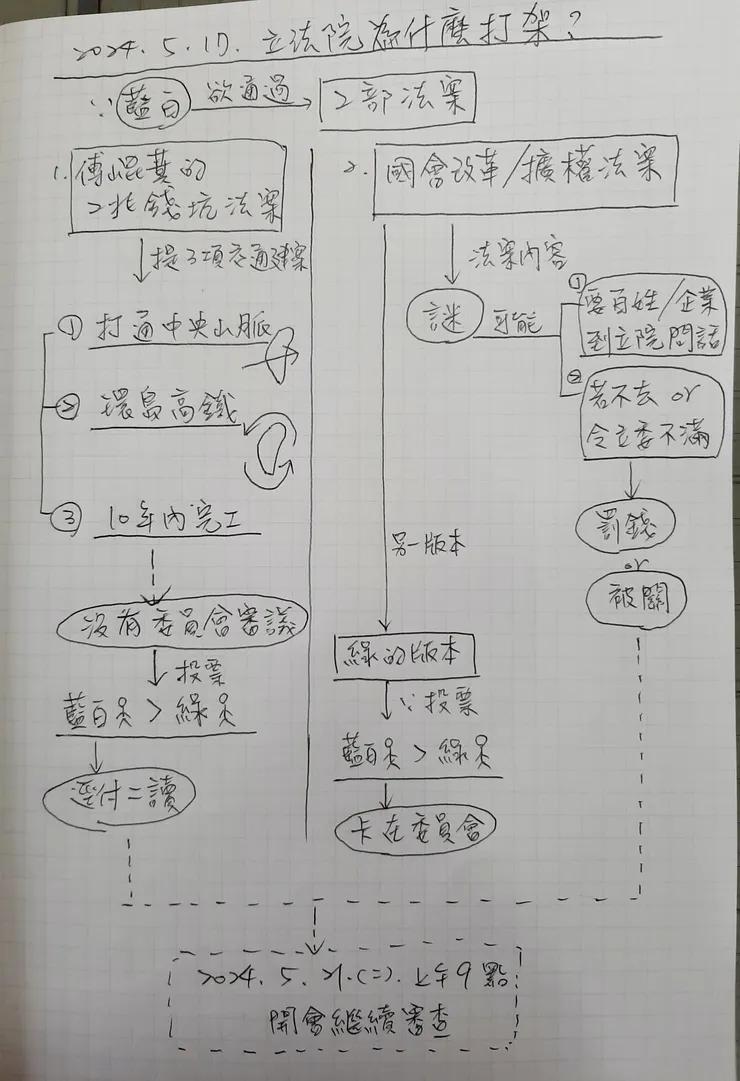 2024.5.17. 立法院為什麼打架?
∵ 藍白 欲通過 → 2部法案
1. 傅崐萁的
2兆錢坑法案
提3項交通建案
① 打通中央山脈
② 環島高鐵
③ 10年內完工
沒有委員會審議
投票
藍白 > 綠
逕付二讀
2. 國會改革/擴權法案
法案內容
謎 可能
① 要百姓/企業
到立院問話
② 若不去 or
令立委不滿
罰錢
or
被關
另一版本
綠的版本
∵ 投票
藍白 > 綠
卡在委員會
2024.5.21.(二).
9點
開會繼續審查